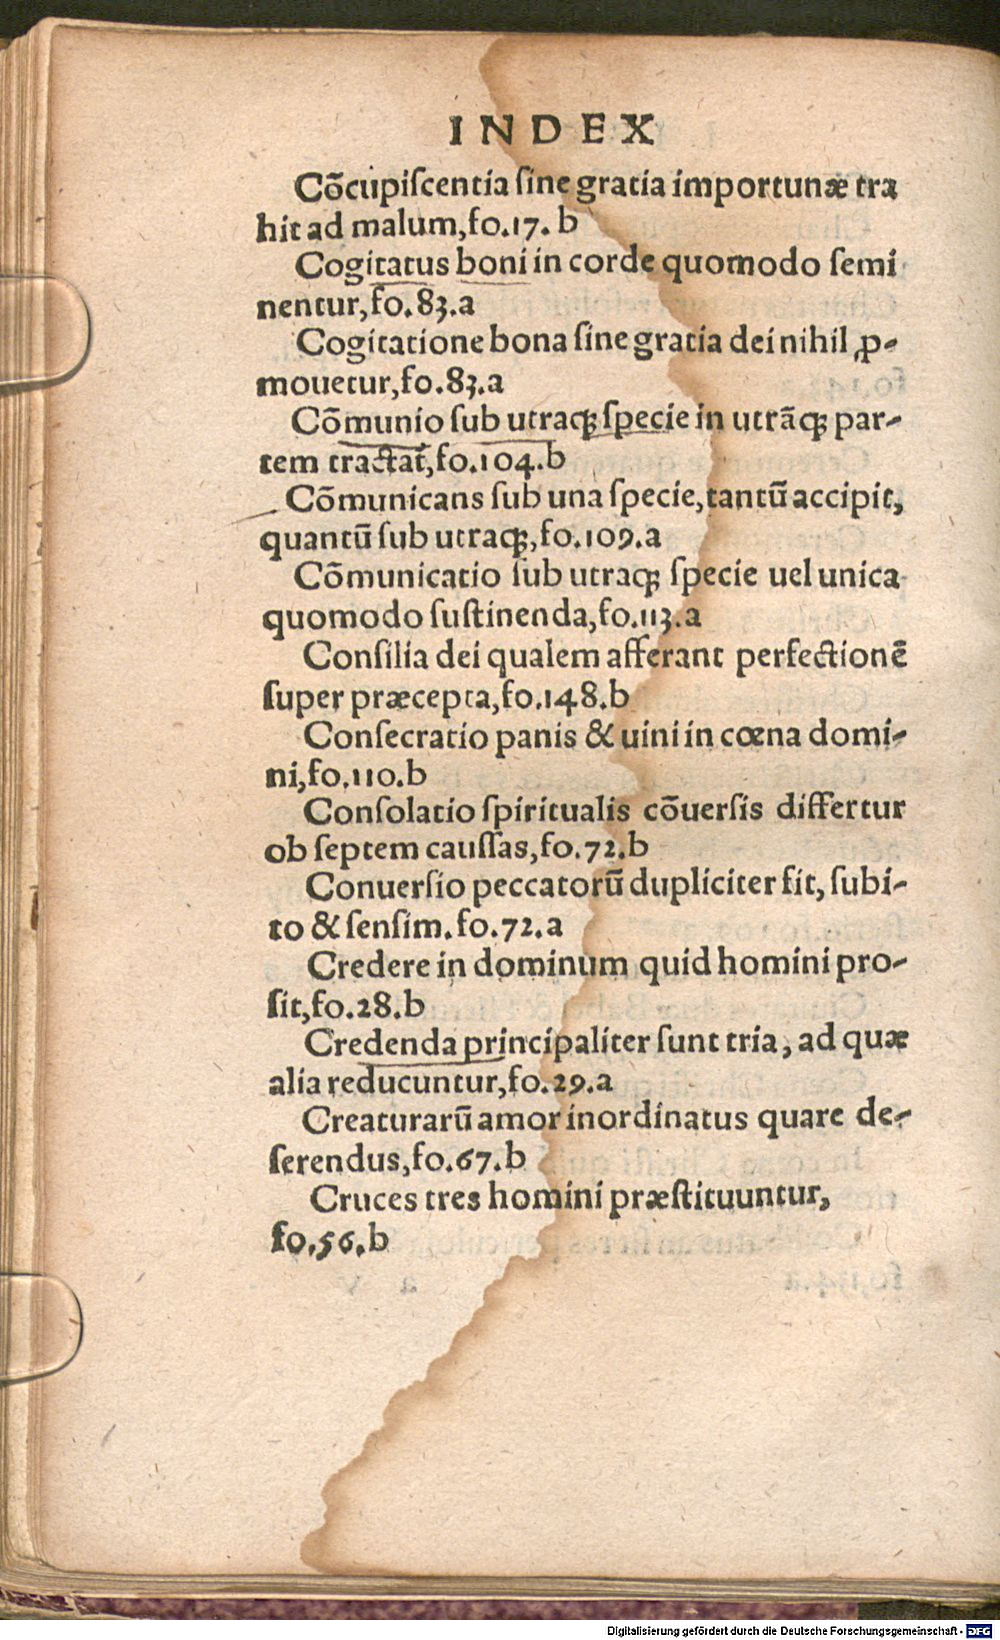 INDEX
Cõcupiſcentia ſine gratia importunæ tra
hit ad malum,fo.17. b
Cogitatus boni in corde quomodo ſemi
nentur,fo.83.a
Cogitatione bona ſine gratia dei nihil ꝓ-
mouetur,fo.83.a
Cõmunio ſub utraqꝫ ſpecie in utrãqꝫ par-
tem tractat̃,fo.104.b
Cõmunicans ſub una ſpecie,tantũ accipit,
quantũ ſub utraqꝫ,fo.109.a
Cõmunicatio ſub utraqꝫ ſpecie uel unica
quomodo ſuſtinenda,fo.113.a
Conſilia dei qualem afferant perfectionẽ
ſuper præcepta,fo.148.b
Conſecratio panis & uini in cœna domi-
ni,fo.110.b
Conſolatio ſpiritualis cõuerſis differtur
ob ſeptem cauſſas,fo.72.b
Conuerſio peccatorũ dupliciter fit, ſubi-
to & ſenſim. fo.72.a
Credere in dominum quid homini pro-
ſit,fo.28.b
Credenda principaliter ſunt tria, ad quæ
alia reducuntur,fo.29.a
Creaturarũ amor inordinatus quare de-
ſerendus,fo.67.b
Cruces tres homini præſtituuntur,
fo.56.b
Digitalisierung gefördert durch die Deutsche Forschungsgemeinschaft - DFG